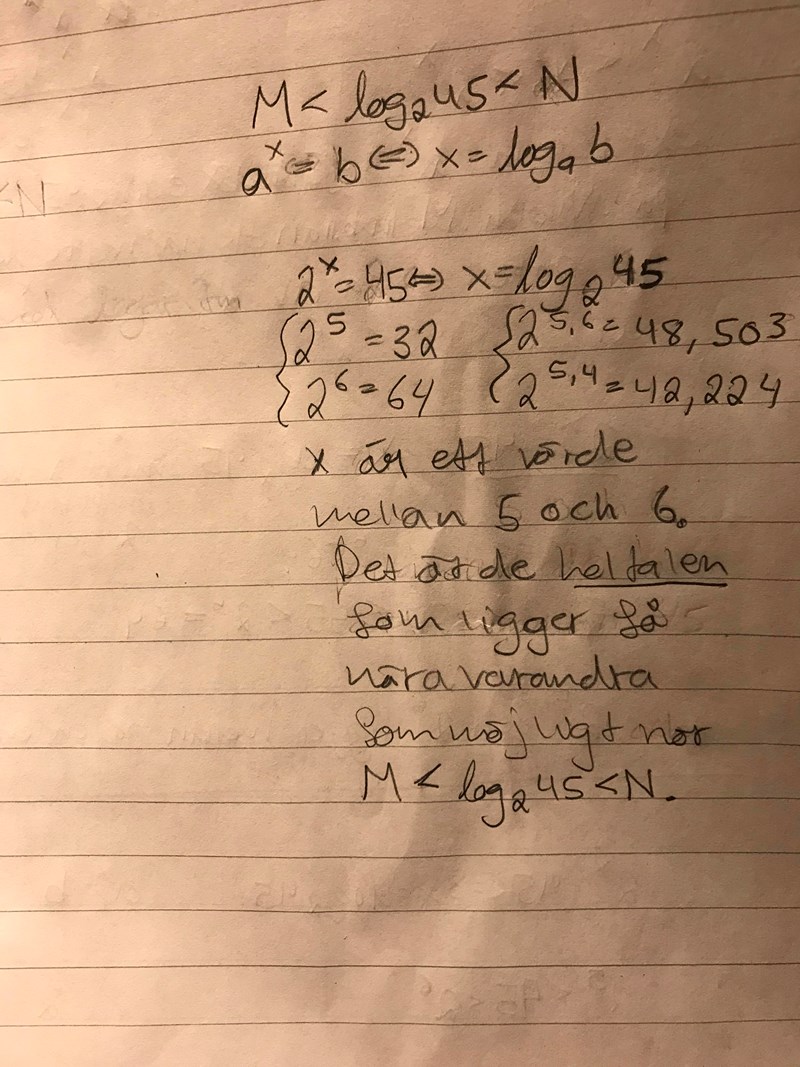 M < log₂45 < N
aˣ = b ⇔ x = logₐ b
<N
2ˣ = 45 ⇔ x = log₂ 45
2⁵ = 32 2^5,6 = 48,503
2⁶ = 64 2^5,4 = 42,224
x är ett värde
mellan 5 och 6.
Det är de heltalen
som ligger så
nära varandra
som möjligt när
M < log₂45 < N.